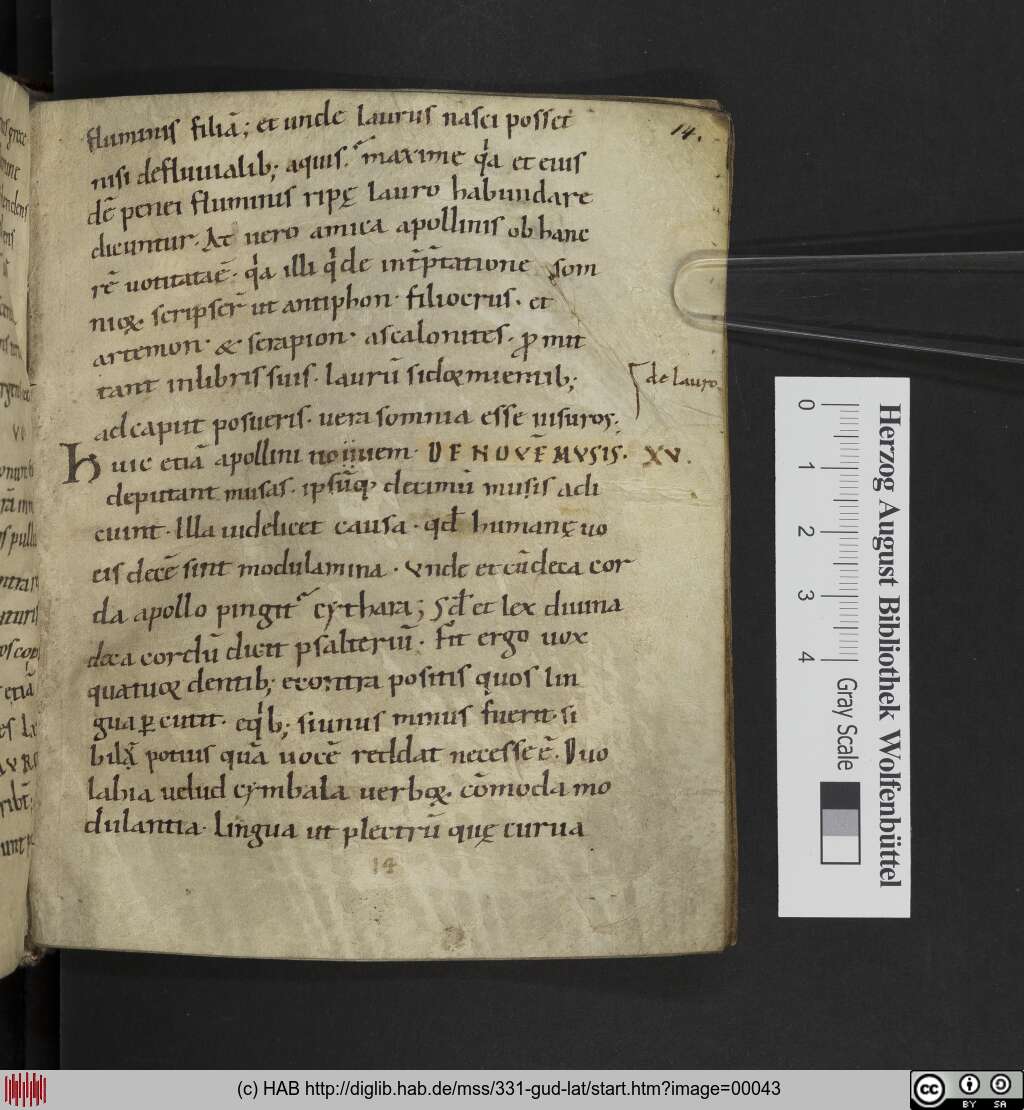 14.
fluminis filiā; et unde laurus nasci posset
nisi de fluuialib; aquis. maxime q͛a et eius
dē penei fluminis ripę lauro habundare
dicuntur. At uero amica apollinis ob hanc
rē uotitataē. q͛a illi q͛ de int̄p̄tatione som
nioꝝ scripser̄ ut antiphon. filiocrus. et
artemon. & serapion. ascalonites. ꝓmit
tant in libris suis. laurū si doꝛmientib;
de lauro.
ad caput posueris. uera somnia esse uisuros.
Huic etiā apollini nouem. DE NOVĒ MVSIS. XV.
deputant musas. ipsūqꝫ decimū musis adi
ciunt. Illa uidelicet causa. qđ humanę uo
cis decē sint modulamina. vnde et cū deca cor
da apollo pingit͛ cythara; Sđ et lex diuina
deca cordū dicit psalteriū. Fit ergo uox
quatuoꝛ dentib; econtra positis quos lin
gua ꝑcutit. eq͛b; si unus minus fuerit. si
bilū potius quā uocē reddat necesse ē. Duo
labia uelud cymbala uerboꝝ. cōmoda mo
dulantia. Lingua ut plectrū quę curua
14
Herzog August Bibliothek Wolfenbüttel
0 1 2 3 4
Gray Scale
(c) HAB http://diglib.hab.de/mss/331-gud-lat/start.htm?image=00043
cc BY SA